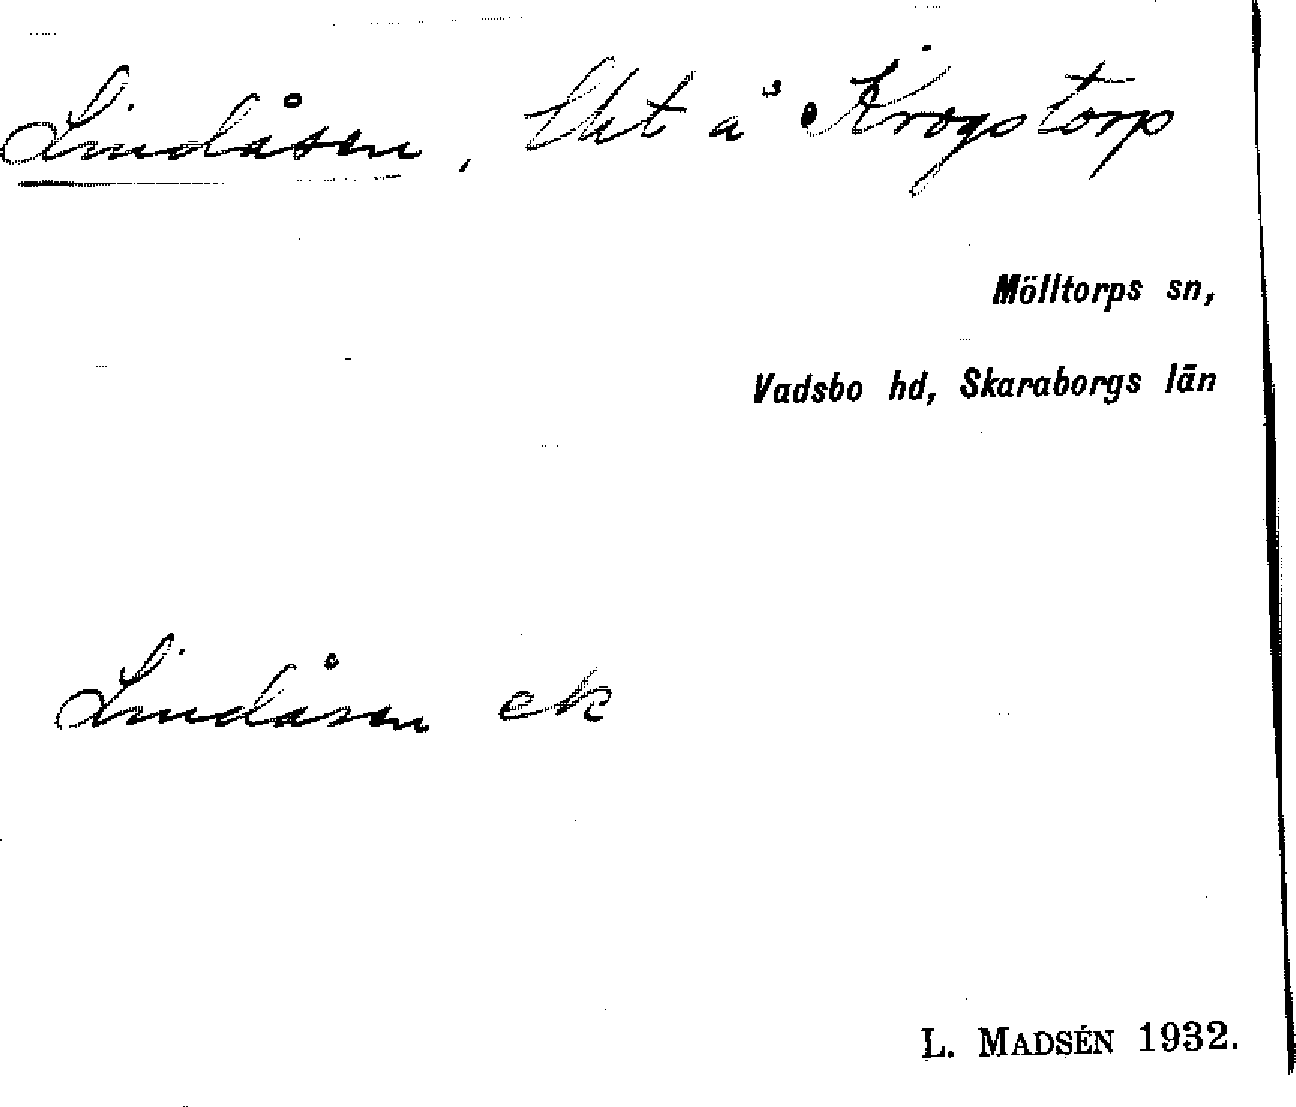 Lindåsen, Lht å Krogstorp
Mölltorps sn,
Vadsbo hd, Skaraborgs län
Lindåsen ek
L. MADSÉN 1932.